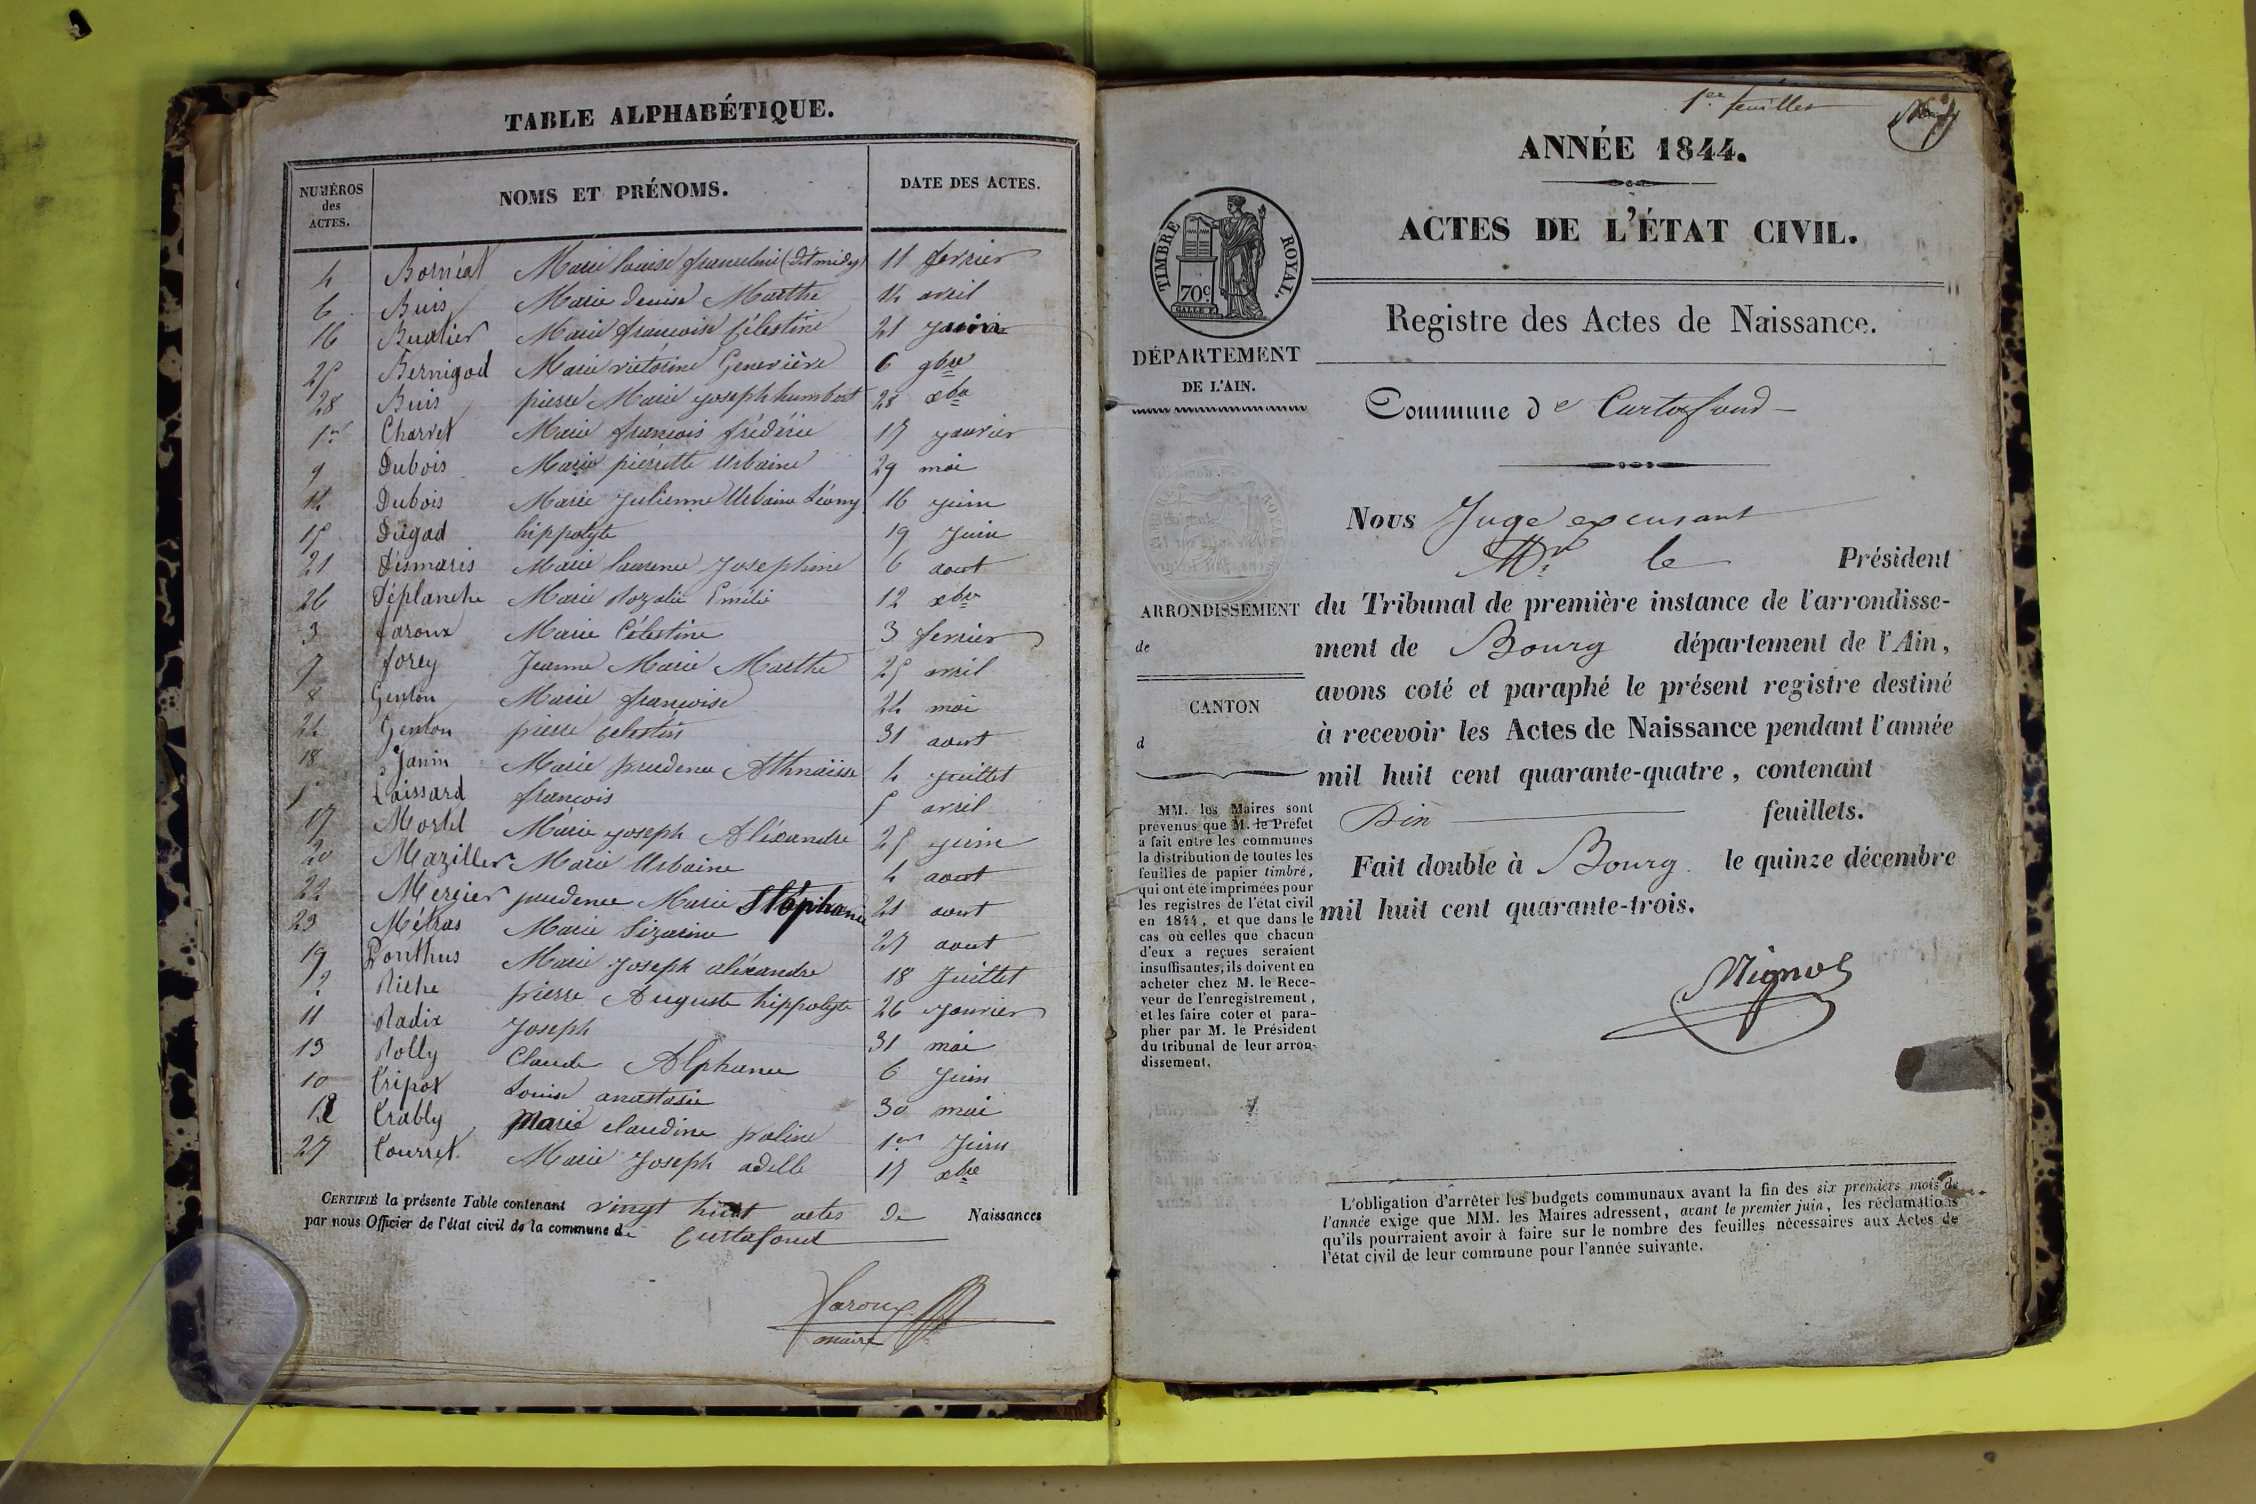 TABLE ALPHABÉTIQUE.
NUMÉROS des ACTES.
NOMS ET PRÉNOMS.
DATE DES ACTES.
4 Bornéat Marie louise franceline (dit midy) 11 fevrier
6 Buis Marie denise Marthe 14 avril
16 Buatier Marie francoise Célestine 21 juin
25 Bernigod Marie victorine Genevière 6 9bre
28 Buis pierre Marie joseph humbert 28 xbre
1er Charvet Marie francois frédéric 17 janvier
9 Dubois Marie pierrette Urbaine 29 mai
14 Dubois Marie Julienne Urbaine Léony 16 juin
15 Dugad hippolyte 19 Juin
21 Désmaris Marie laurence Josephine 6 aout
26 Déplanche Marie Rozalie Emélie 12 xbre
3 faroux Marie Célestine 3 fevrier
7 forey Jeanne Marie Marthe 25 avril
8 Genton Marie francoise 24 mai
24 Genton pierre Celestin 31 aout
18 Janin Marie prudence Athnaïsse 4 juillet
5 Laissard francois 5 avril
17 Mortel Marie joseph Aléxandre 25 juin
20 Maziller Marie Urbaine 4 aout
22 Mercier prudence Marie Stéphanie 21 aout
23 Métras Marie Lizarine 27 aout
19 Ponthus Marie Joseph aléxandre 18 Juillet
2 Riche pierre Auguste hippolyte 26 Janvier
11 Radix Joseph 31 mai
13 Rolly Claude Alphonse 6 Juin
10 Tripoz Louise anastasie 30 mai
12 Trably Marie claudine poline 1er Juin
27 Tourret Marie Joseph adelle 17 xbre
CERTIFIÉ la présente Table contenant vingt huit actes de Naissances
par nous Officier de l'état civil de la commune de Curtafond
faroux
maire
1er feuillet
ANNÉE 1844.
ACTES DE L'ÉTAT CIVIL.
TIMBRE ROYAL.
70c
Registre des Actes de Naissance.
DÉPARTEMENT
DE L'AIN.
Commune de Curtafond
Nous Juge excusant
Mr le Président
ARRONDISSEMENT
de
du Tribunal de première instance de l'arrondisse-
ment de Bourg département de l'Ain,
avons coté et paraphé le présent registre destiné
CANTON
d
à recevoir les Actes de Naissance pendant l'année
mil huit cent quarante-quatre, contenant
Dix feuillets.
Fait double à Bourg le quinze décembre
mil huit cent quarante-trois.
MM. les Maires sont
prévenus que M. le Préfet
a fait entre les communes
la distribution de toutes les
feuilles de papier timbré,
qui ont été imprimées pour
les registres de l'état civil
en 1844, et que dans le
cas où celles que chacun
d'eux a reçues seraient
insuffisantes, ils doivent en
acheter chez M. le Rece-
veur de l'enregistrement,
et les faire coter et para-
pher par M. le Président
du tribunal de leur arron-
dissement.
L'obligation d'arrêter les budgets communaux avant la fin des six premiers mois de
l'année exige que MM. les Maires adressent, avant le premier juin, les réclamations
qu'ils pourraient avoir à faire sur le nombre des feuilles nécessaires aux Actes de
l'état civil de leur commune pour l'année suivante.